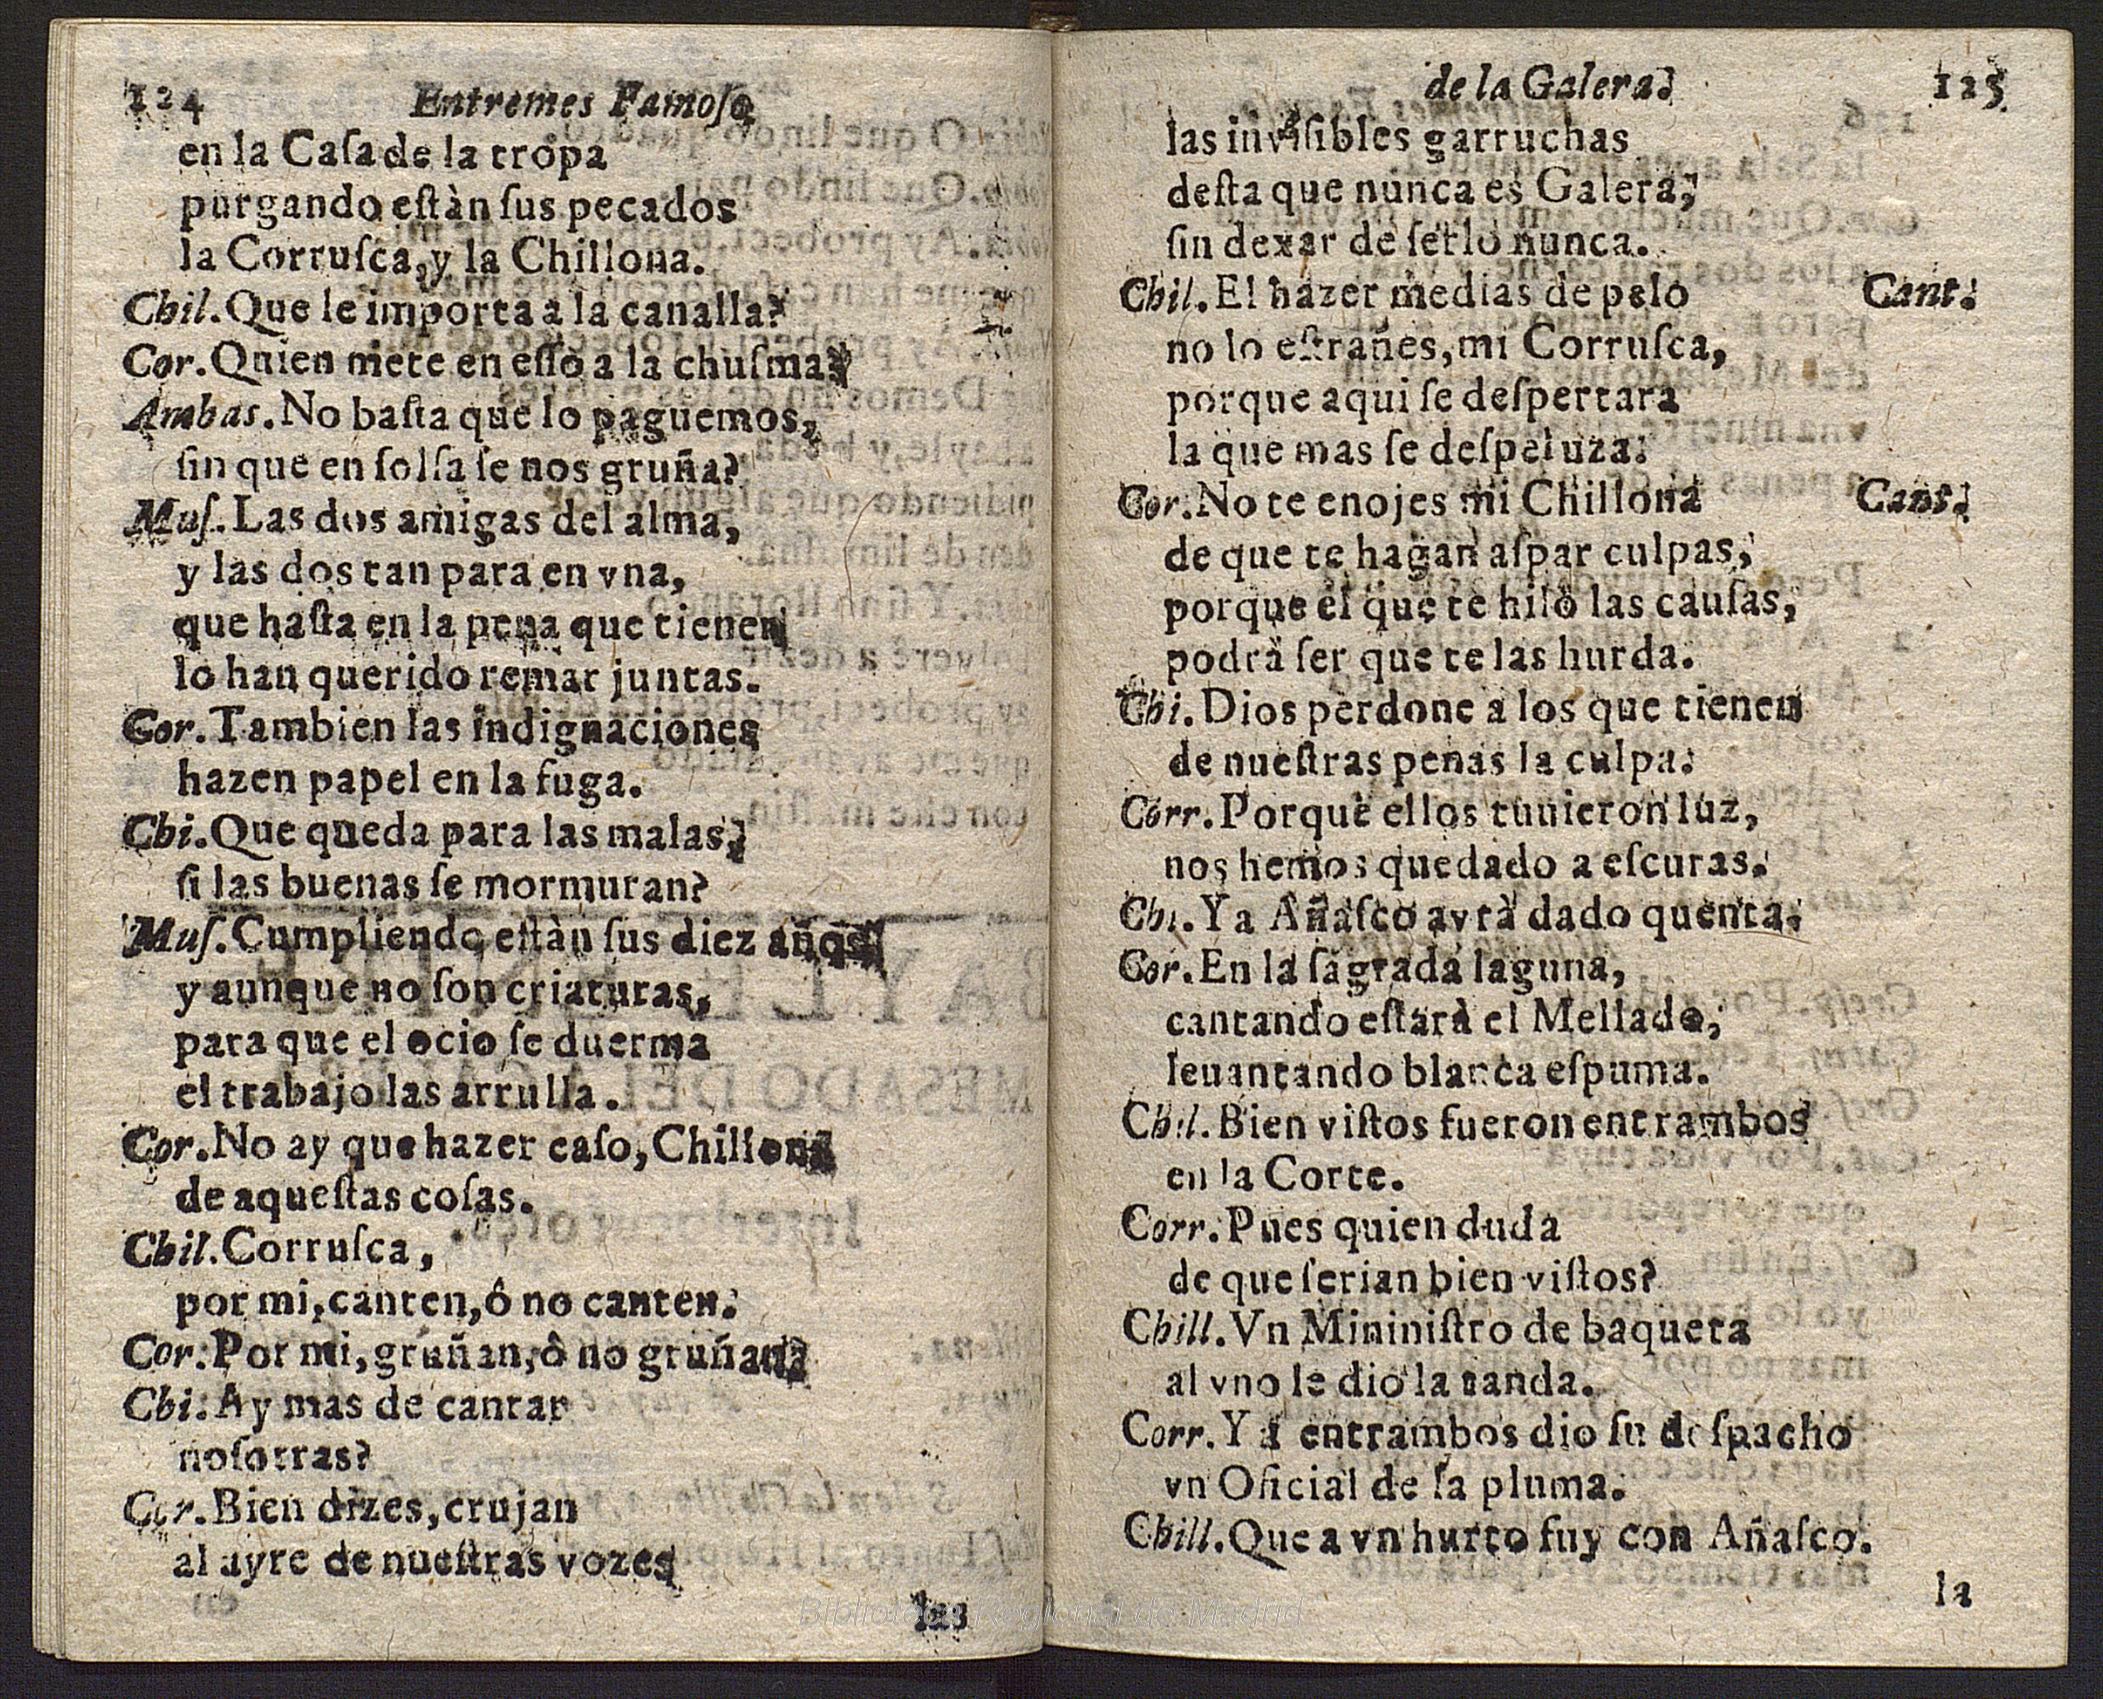 124 Entremes Famoſo,
en la Caſa de la tropa
purgando eſtàn ſus pecados
la Corruſca, y la Chillona.
Chil. Que le importa a la canalla?
Cor. Quien mete en eſſo a la chuſma?
Ambas. No baſta que lo paguemos,
ſin que en ſolfa ſe nos gruña?
Muſ. Las dos amigas del alma,
y las dos tan para en vna,
que haſta en la pena que tienen
lo han querido remar juntas.
Cor. Tambien las indignaciones
hazen papel en la fuga.
Chi. Que queda para las malas,
ſi las buenas ſe mormuran?
Muſ. Cumpliendo eſtàn ſus diez años
y aunque no ſon criaturas,
para que el ocio ſe duerma
el trabajo las arrulla.
Cor. No ay que hazer caſo, Chillona
de aqueſtas coſas.
Chil. Corruſca,
por mi, canten, ô no canten.
Cor. Por mi, gruñan, ô no gruñan.
Chi. Ay mas de cantar
noſotras?
Cor. Bien dizes, crujan
al ayre de nueſtras vozes
las
de la Galera. 125
las inviſibles garruchas
deſta que nunca es Galera,
ſin dexar de ſerlo nunca.
Chil. El hazer medias de pelo Cant.
no lo eſtrañes, mi Corruſca,
porque aqui ſe deſpertara
la que mas ſe deſpeluza.
Cor. No te enojes mi Chillona Cant.
de que te hagan aſpar culpas,
porque el que te hilò las cauſas,
podrà ſer que te las hurda.
Chi. Dios perdone a los que tienen
de nueſtras penas la culpa.
Corr. Porque ellos tuuieron luz,
nos hemos quedado a eſcuras.
Chi. Ya Añaſco avrà dado quenta.
Cor. En la ſagrada laguna,
cantando eſtarà el Mellado,
leuantando blanca eſpuma.
Chil. Bien viſtos fueron entrambos
en la Corte.
Corr. Pues quien duda
de que ſerian bien viſtos?
Chill. Vn Mininiſtro de baqueta
al vno le dio la tanda.
Corr. Y a entrambos dio ſu deſpacho
vn Oficial de la pluma.
Chill. Que a vn hurto fuy con Añaſco.
la
Biblioteca Regional de Madrid